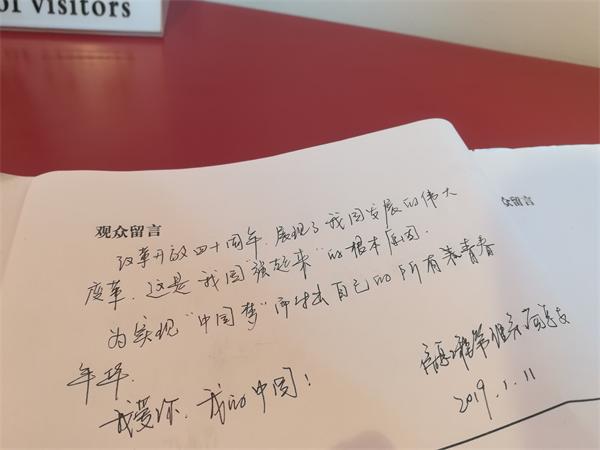 of visitors
观众留言
众留言
改革开放四十周年,展现了我国发展的伟大
变革.这是我国"强起来"的根本原因.
为实现"中国梦"而付出自己的所有和青春
年华.
我爱你,我的中国!
2019.1.11